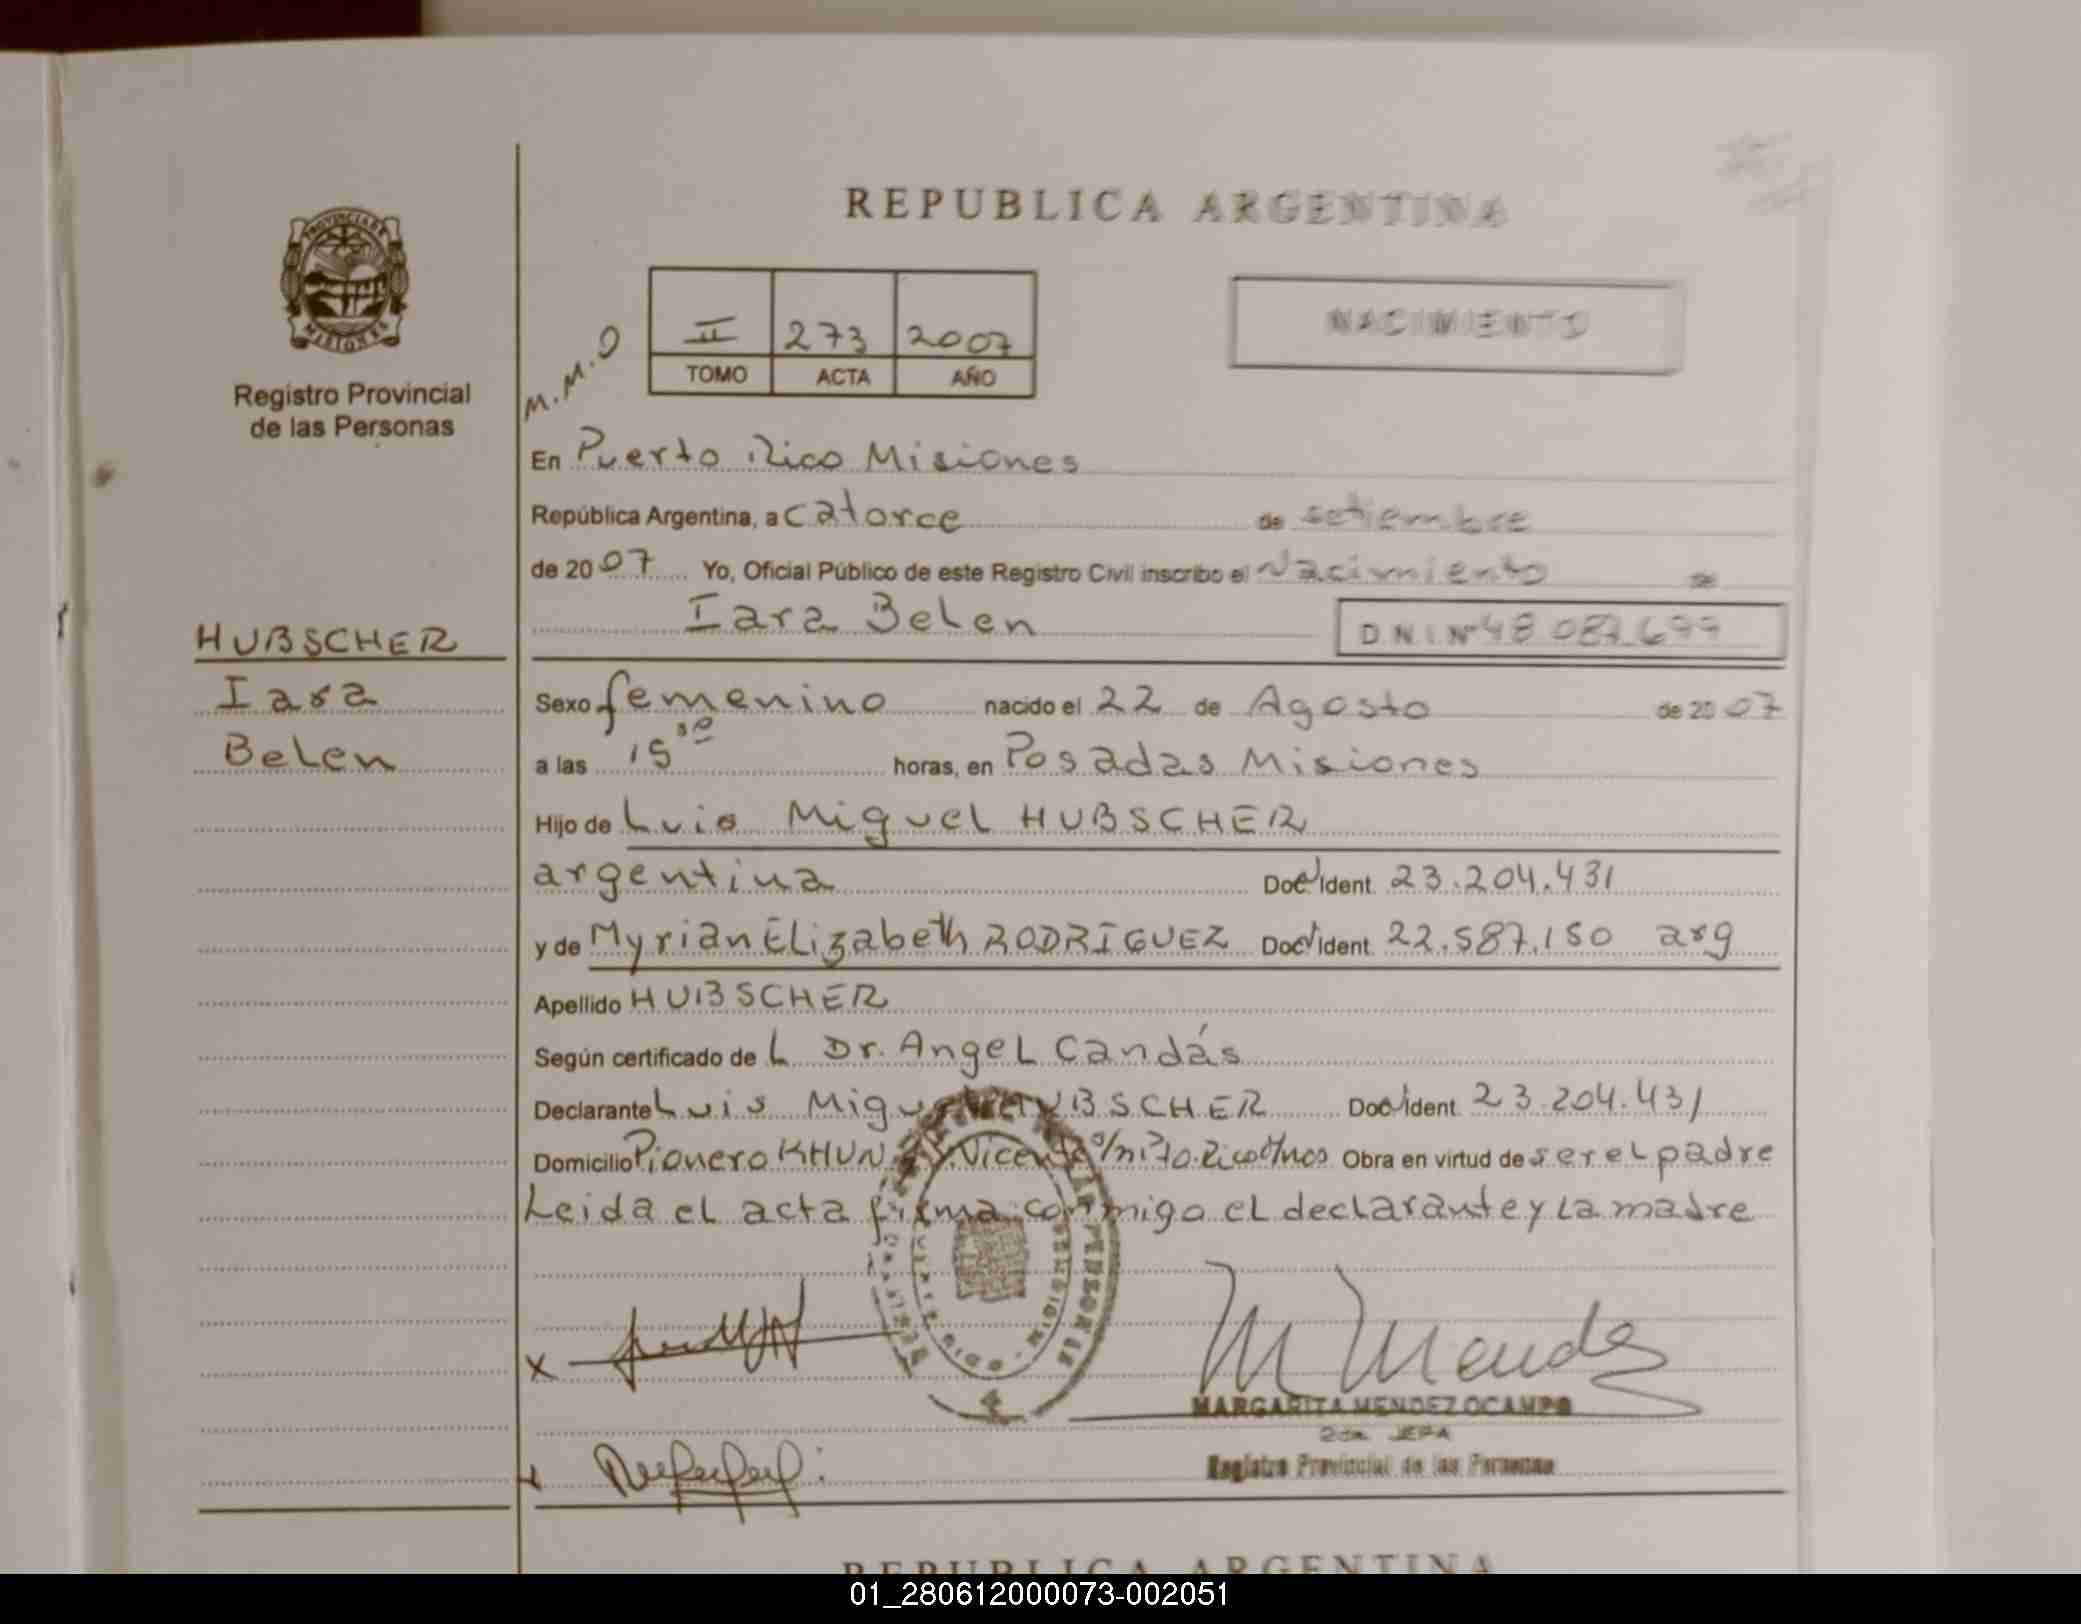 REPUBLICA ARGENTINA
PROVINCIA DE
MISIONES
Registro Provincial
de las Personas
M.M.O
II 273 2007
TOMO ACTA AÑO
NACIMIENTO
En Puerto Rico Misiones
República Argentina, a catorce de setiembre
de 2007 Yo, Oficial Público de este Registro Civil inscribo el Nacimiento de
Iara Belen
D.N.I. Nº 48 087 699
HUBSCHER
Iara
Belen
Sexo femenino nacido el 22 de Agosto de 2007
a las 15 horas, en Posadas Misiones
Hijo de Luis Miguel HUBSCHER
argentina Doc Ident. 23.204.431
y de Myrian Elizabeth RODRIGUEZ Doc Ident. 22.587.150 arg
Apellido HUBSCHER
Según certificado de L Dr. Angel Candás
Declarante Luis Miguel HUBSCHER Doc Ident. 23.204.431
Domicilio Pionero KHUN Vicente s/n Pto. Rico Obra en virtud de ser el padre
Leida el acta firma conmigo el declarante y la madre
M Mendez
MARGARITA MENDEZ OCAMPO
2da JEFA
Registro Provincial de las Personas
REPUBLICA ARGENTINA
01_280612000073-002051